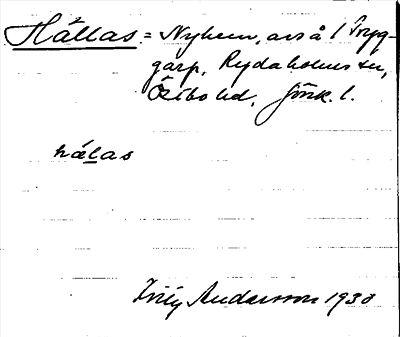 Hållas = Nyhem, avs å 1 Tryg-
garp, Rydaholms sn,
Östbo hd, Jönk. l.
hålas
Willy Andersson 1930